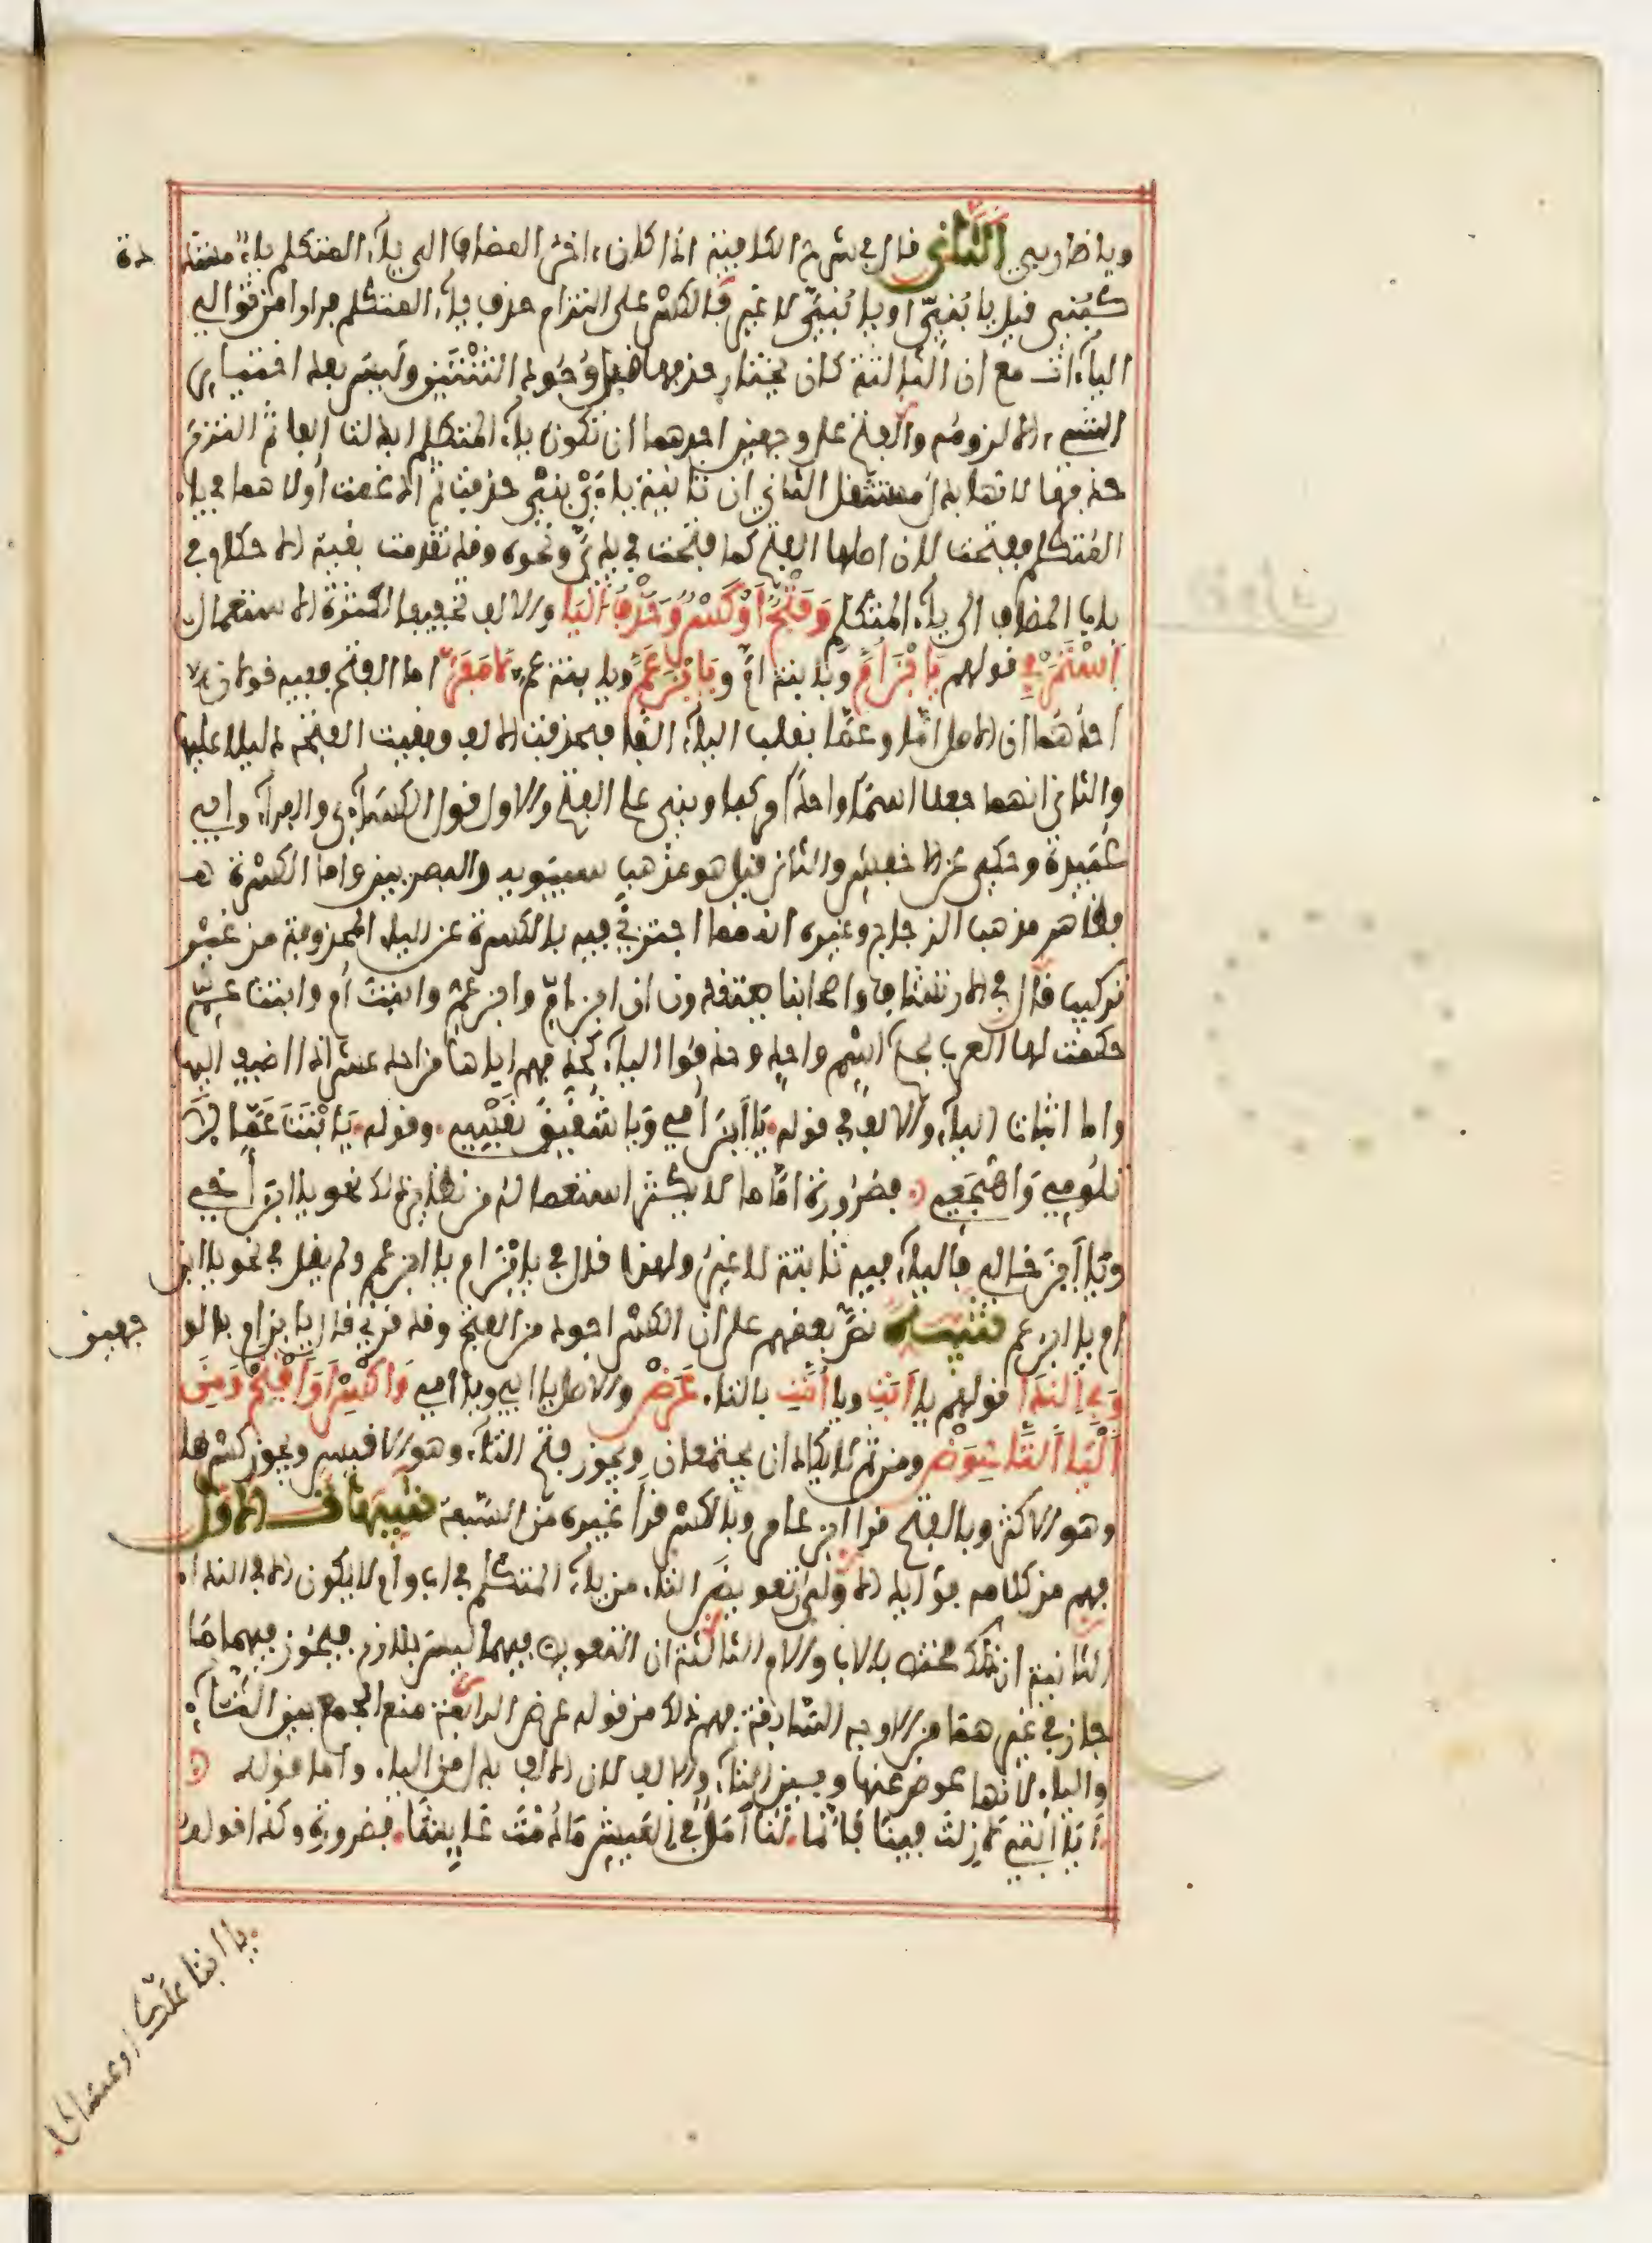 ويا ضاربي الثاني قال في شرح الكافية اذا كان ءاخر المضاف الى ياء المتكلم ياء مشددة
كبني قيل يا بنيّ او يا بنيّ لا غير فالكسر على التزام حذف ياء المتكلم فرارا من توالي
الياءات مع ان الثالثة كان يختار حذفها قبل وجود الثنتين وليس بعد اختيار
الشيء الا لزومه والفتح على وجهين احدهما ان تكون ياء المتكلم ابدلت الفا ثم التزم
حذفها لانها بدل مستثقل الثاني ان ثانية ياءي بني حذفت ثم ادغمت اولاهما في ياء
المتكلم ففتحت لان اصلها الفتح كما فتحت في يديّ ونحوه وقد تقدمت بقية الاحكام في
باب المضاف الى ياء المتكلم وَفَتْحٌ اَوْ كَسْرٌ وَحَذْفُ اليَا والالف تخفيفا لكثرة الاستعمال
اسْتَمَرْ في قولهم يَا ابْنَ اُمَّ ويا بنة امّ و يَا ابْنَ عَمَّ ويا بنة عم لَا مَفَرّ اما الفتح ففيه قولان
احدهما ان الاصل امّا وعمّا بقلب الياء الفا فحذفت الالف وبقيت الفتحة دليلا عليها
والثاني انهما جعلا اسما واحدا مركبا وبني على الفتح والاول قول الكساءي والفراء وابي
عبيدة وحكي عن الاخفش والثاني قيل هو مذهب سيبويه والبصريين واما الكسرة
فظاهر مذهب الزجاج وغيره انه مما اجتزئ فيه بالكسرة عن الياء المحذوفة من غير
تركيب قال في الارتشاف واصحابنا يعتقدون ان ابن امّ وابن عمّ وابنت ام وابنت عمّ
حكمت لها العرب بحكم اسم واحد وحذفوا الياء كحذفهم اياها من احد عشر اذا اضيف اليها
واما اثبات الياء والالف في قوله يَا ابْنَ اُمِّي وَيَا شُقَيِّقَ نَفْسِي وقوله يَا بْنَتَ عَمَّا لَا
تلُومِي وَاهْجَعِي فضرورة امّا ما لا يكثر استعماله من نظاير ذلك نحو يا ابن اخي
ويا ابن خالي فالياء فيه ثابتة لا غير ولهذا قال في يا ابن ام يا ابن عم ولم يقل في نحو يا ابن
ام يا ابن عم تنبيه نصّ بعضهم على ان الكسر اجود من الفتح وقد قرئ قال يا ابن ام بالوجهين
وَفِي النِّدَا قولهم يا اَبَتِ ويا اُمَّتِ بالتاء عَرَضْ والاصل يا ابي ويا امي وَاكْسِرْ اَوِ افْتَحْ وَمِنَ
الْيَا التَّا عِوَضْ ومن ثم لا يكادان يجتمعان ويجوز فتح التاء وهو الاقيس ويجوز كسرها
وهو الاكثر وبالفتح قرا ابن عامر وبالكسر قرا غيره من السبعة تنبيهات الاول
فهم من كلامه فوايد الاولى ان تعويض التاء من ياء المتكلم في اب وام لا يكون الا في النداء
الثانية ان ذلك مختص بالاب والام الثالثة ان التعويض فيهما ليس بلازم فيجوز فيهما ما
جاز في غيرهما من الاوجه السابقة فهم ذلك من قوله عرض الرابعة منع الجمع بين التاء
والياء لانها عوض عنها وبين التاء والالف لان الالف بدل من الياء واما قوله
اَيَا ابَتِي لَا زِلْتَ فِينَا فَاِنَّمَا لَنَا اَمَلٌ فِي الْعَيْشِ مَا دُمْتَ عَايِشًا فضرورة وكذا قوله
يا ابتا علّك او عساكا